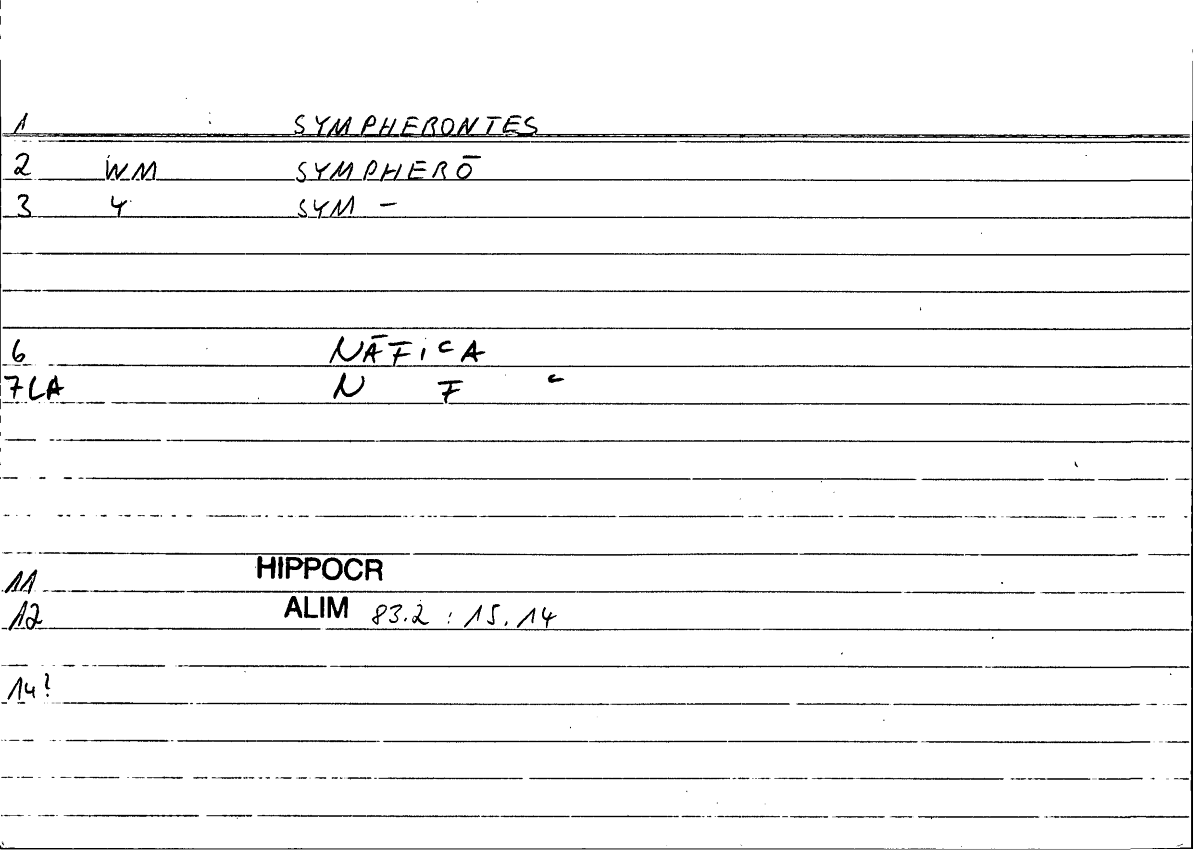 1 SYMPHERONTES
2 WM SYMPHERŌ
3 4 SYM -
6 NĀFiʿA
7LA N F ʿ
11 HIPPOCR
12 ALIM 83.2 : 15.14
14?